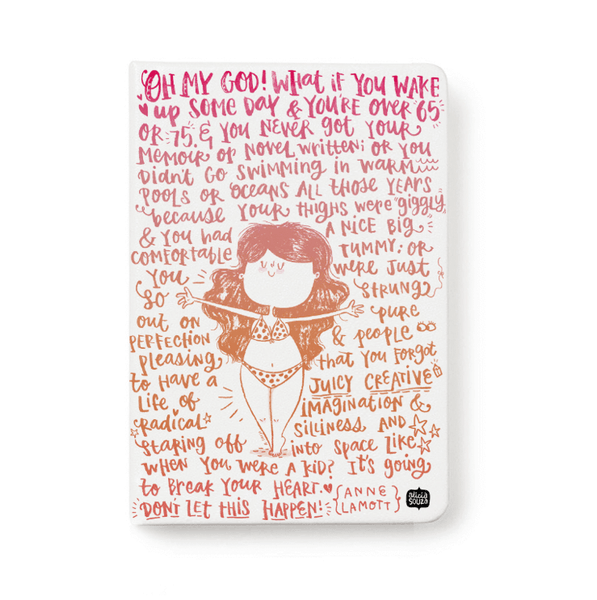 OH MY GOD! WHAT IF YOU WAKE
UP SOME DAY & YOU'RE OVER 65
OR 75, & YOU NEVER GOT YOUR
MEMOIR OR NOVEL WRITTEN; OR YOU
DIDN'T GO SWIMMING IN WARM
POOLS OR OCEANS ALL THOSE YEARS
because YOUR THIGHS WERE "giggly,
& YOU HAD A NICE BIG
COMFORTABLE TUMMY; OR
YOU WERE JUST
SO STRUNG
OUT ON PURE
PERFECTION & PEOPLE
pleasing, THAT YOU FORGOT
to HAVE A JUICY CREATIVE
LIFE OF IMAGINATION &
RADICAL SILLINESS AND
STARING OFF INTO SPACE LIKE
WHEN YOU WERE A KID? IT'S GOING
to BREAK YOUR HEART.
DON'T LET THIS HAPPEN! {ANNE
LAMOTT}
alicia
souza